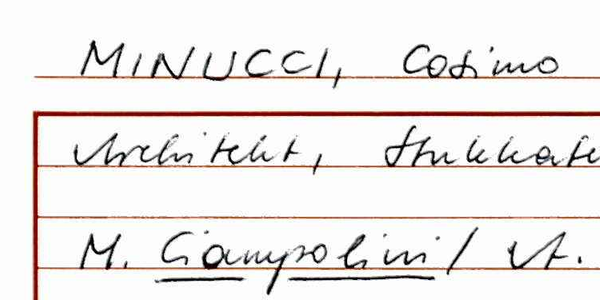 MINUCCI, Cosimo
Architekt, Stukkate
M. Ciampolini / A.